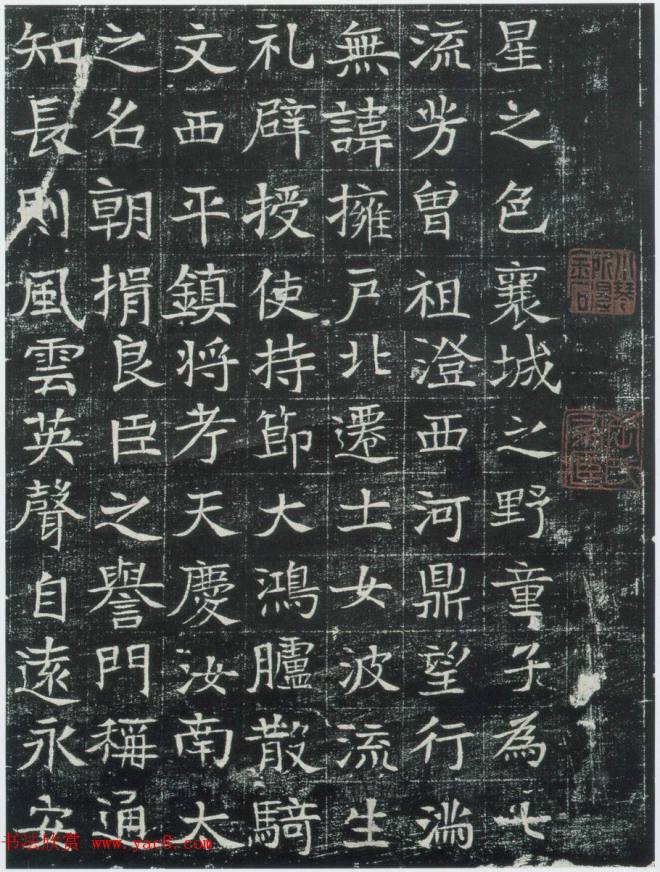 星之色襄城之野童子為七
流芳曾祖澄西河鼎望行淌
無諱擁戶北遷士女波流生
礼辟授使持節大鴻臚散騎
文西平鎮將考天慶汝南太
之名朝捐良臣之譽門稱通
知長則風雲英聲自遠永安
书法欣赏 www.yac8.com